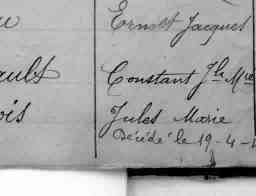 Ernest Jacques
ault Constant Jh Mie
ois Jules Marie
Décédé le 19-4-